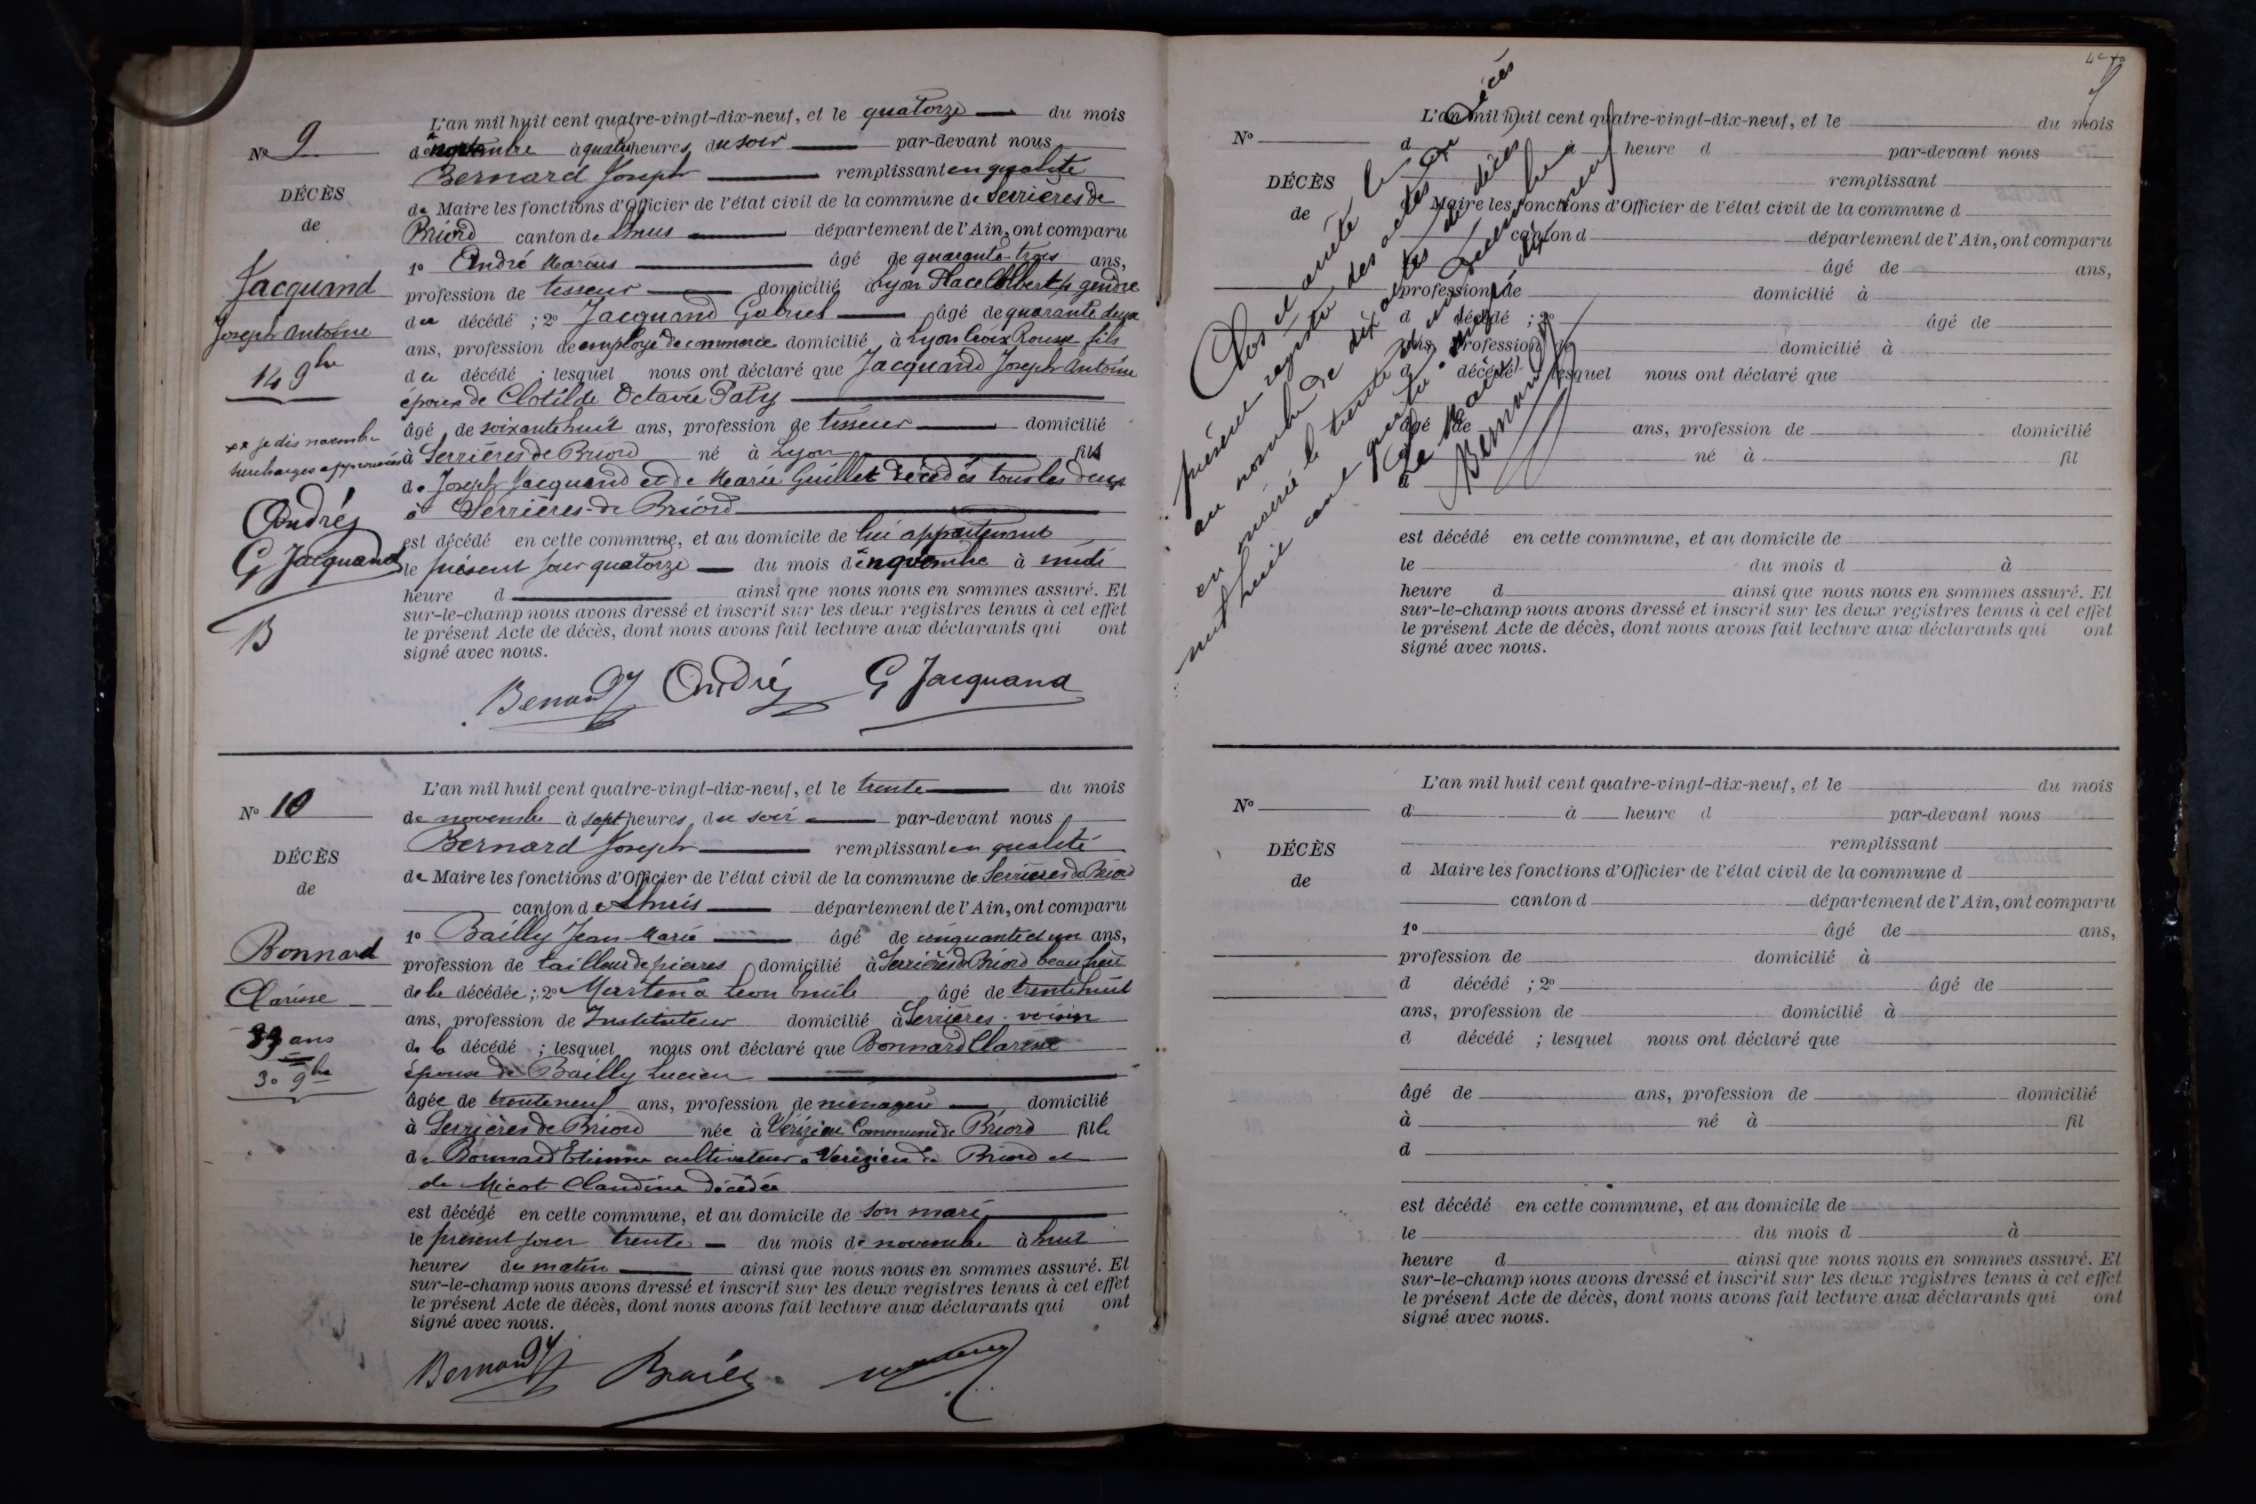 Nº 9
DÉCÈS
de
Jacquand
Joseph Antoine
14 9bre
xx je dis novembre
surcharges approuvées
André
G Jacquand
B
L'an mil huit cent quatre-vingt-dix-neuf, et le quatorze du mois
de novembre à quatre heures du soir par-devant nous
Bernard Joseph remplissant en qualité
de Maire les fonctions d'Officier de l'état civil de la commune de Serrières de
Briord canton de Lhuis département de l'Ain, ont comparu
1º André Marius âgé de quarante trois ans,
profession de tisseur domicilié à Lyon Place Colbert 4 gendre
du décédé ; 2º Jacquand Gabriel âgé de quarante deux
ans, profession de employé de commerce domicilié à Lyon Croix Rousse fils
du décédé ; lesquel nous ont déclaré que Jacquand Joseph Antoine
époux de Clotilde Octavie Paty
âgé de soixante huit ans, profession de tisseur domicilié
à Serrières de Briord né à Lyon fils
de Joseph Jacquand et de Marie Guillet décédés tous les deux
à Serrières-de Briord
est décédé en cette commune, et au domicile de lui appartenant
le présent jour quatorze du mois de novembre à midi
heure d ainsi que nous nous en sommes assuré. Et
sur-le-champ nous avons dressé et inscrit sur les deux registres tenus à cet effet
le présent Acte de décès, dont nous avons fait lecture aux déclarants qui ont
signé avec nous.
Bernard J André G Jacquand
Nº 10
DÉCÈS
de
Bonnard
Clarisse
39 ans
30 9bre
L'an mil huit cent quatre-vingt-dix-neuf, et le trente du mois
de novembre à sept heures du soir par-devant nous
Bernard Joseph remplissant en qualité
de Maire les fonctions d'Officier de l'état civil de la commune de Serrières de Briord
canton de Lhuis département de l'Ain, ont comparu
1º Bailly Jean Marie âgé de cinquante et un ans,
profession de tailleur de pierres domicilié à Serrières de Briord beau frère
de la décédée ; 2º Martena Léon Emile âgé de trente huit
ans, profession de Instituteur domicilié à Serrières voisin
de la décédé ; lesquel nous ont déclaré que Bonnard Clarisse
épouse de Bailly Lucien
âgée de trente neuf ans, profession de ménagère domicilié
à Serrières de Briord née à Vérizieu Commune de Briord fille
de Bonnard Etienne cultivateur à Verizieu de Briord et
de Micot Claudine décédée
est décédé en cette commune, et au domicile de son mari
le présent jour trente du mois de novembre à huit
heures du matin ainsi que nous nous en sommes assuré. Et
sur-le-champ nous avons dressé et inscrit sur les deux registres tenus à cet effet
le présent Acte de décès, dont nous avons fait lecture aux déclarants qui ont
signé avec nous.
Bernard J Bailly
Clos et arrêté le
présent registre des actes de Décès
au nombre de dix actes de décès
en mairie le trente un décembre
mil huit cent quatre-vingt dix neuf
Le Maire,
Bernard J
Nº
DÉCÈS
de
L'an mil huit cent quatre-vingt-dix-neuf, et le du mois
d à heure d par-devant nous
remplissant
d Maire les fonctions d'Officier de l'état civil de la commune d
canton d département de l'Ain, ont comparu
âgé de ans,
profession de domicilié à
d décédé ; 2º âgé de
ans, profession de domicilié à
d décédé ; lesquel nous ont déclaré que
âgé de ans, profession de domicilié
à né à fil
d
est décédé en cette commune, et au domicile de
le du mois d à
heure d ainsi que nous nous en sommes assuré. Et
sur-le-champ nous avons dressé et inscrit sur les deux registres tenus à cet effet
le présent Acte de décès, dont nous avons fait lecture aux déclarants qui ont
signé avec nous.
Nº
DÉCÈS
de
L'an mil huit cent quatre-vingt-dix-neuf, et le du mois
d à heure d par-devant nous
remplissant
d Maire les fonctions d'Officier de l'état civil de la commune d
canton d département de l'Ain, ont comparu
1º âgé de ans,
profession de domicilié à
d décédé ; 2º âgé de
ans, profession de domicilié à
d décédé ; lesquel nous ont déclaré que
âgé de ans, profession de domicilié
à né à fil
d
est décédé en cette commune, et au domicile de
le du mois d à
heure d ainsi que nous nous en sommes assuré. Et
sur-le-champ nous avons dressé et inscrit sur les deux registres tenus à cet effet
le présent Acte de décès, dont nous avons fait lecture aux déclarants qui ont
signé avec nous.